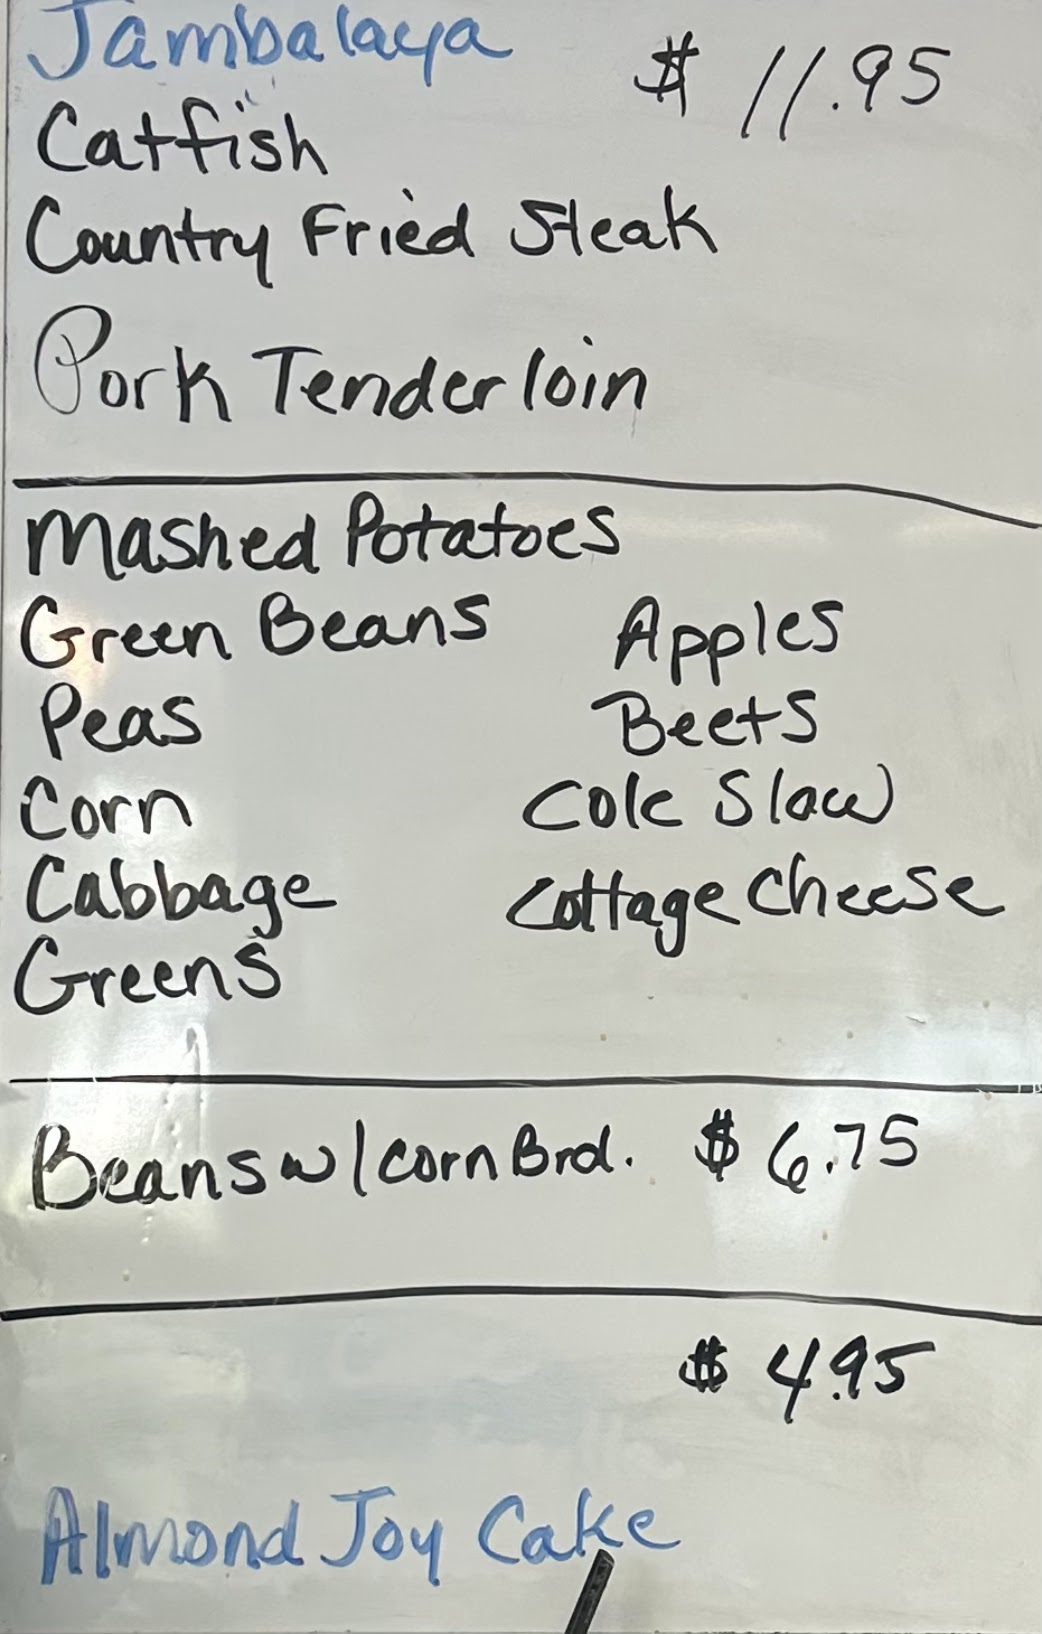 Jambalaya $ 11.95
Catfish
Country Fried Steak
Pork Tenderloin
Mashed Potatoes
Green Beans Apples
Peas Beets
Corn Cole Slaw
Cabbage Cottage Cheese
Greens
Beans w/ corn Brd. $ 6.75
$ 4.95
Almond Joy Cake